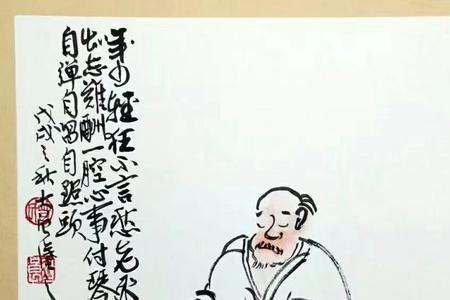 年少輕狂不言愁老来
壮志難酬一腔心事付琴
自弹自唱自點頭
戊戌之秋